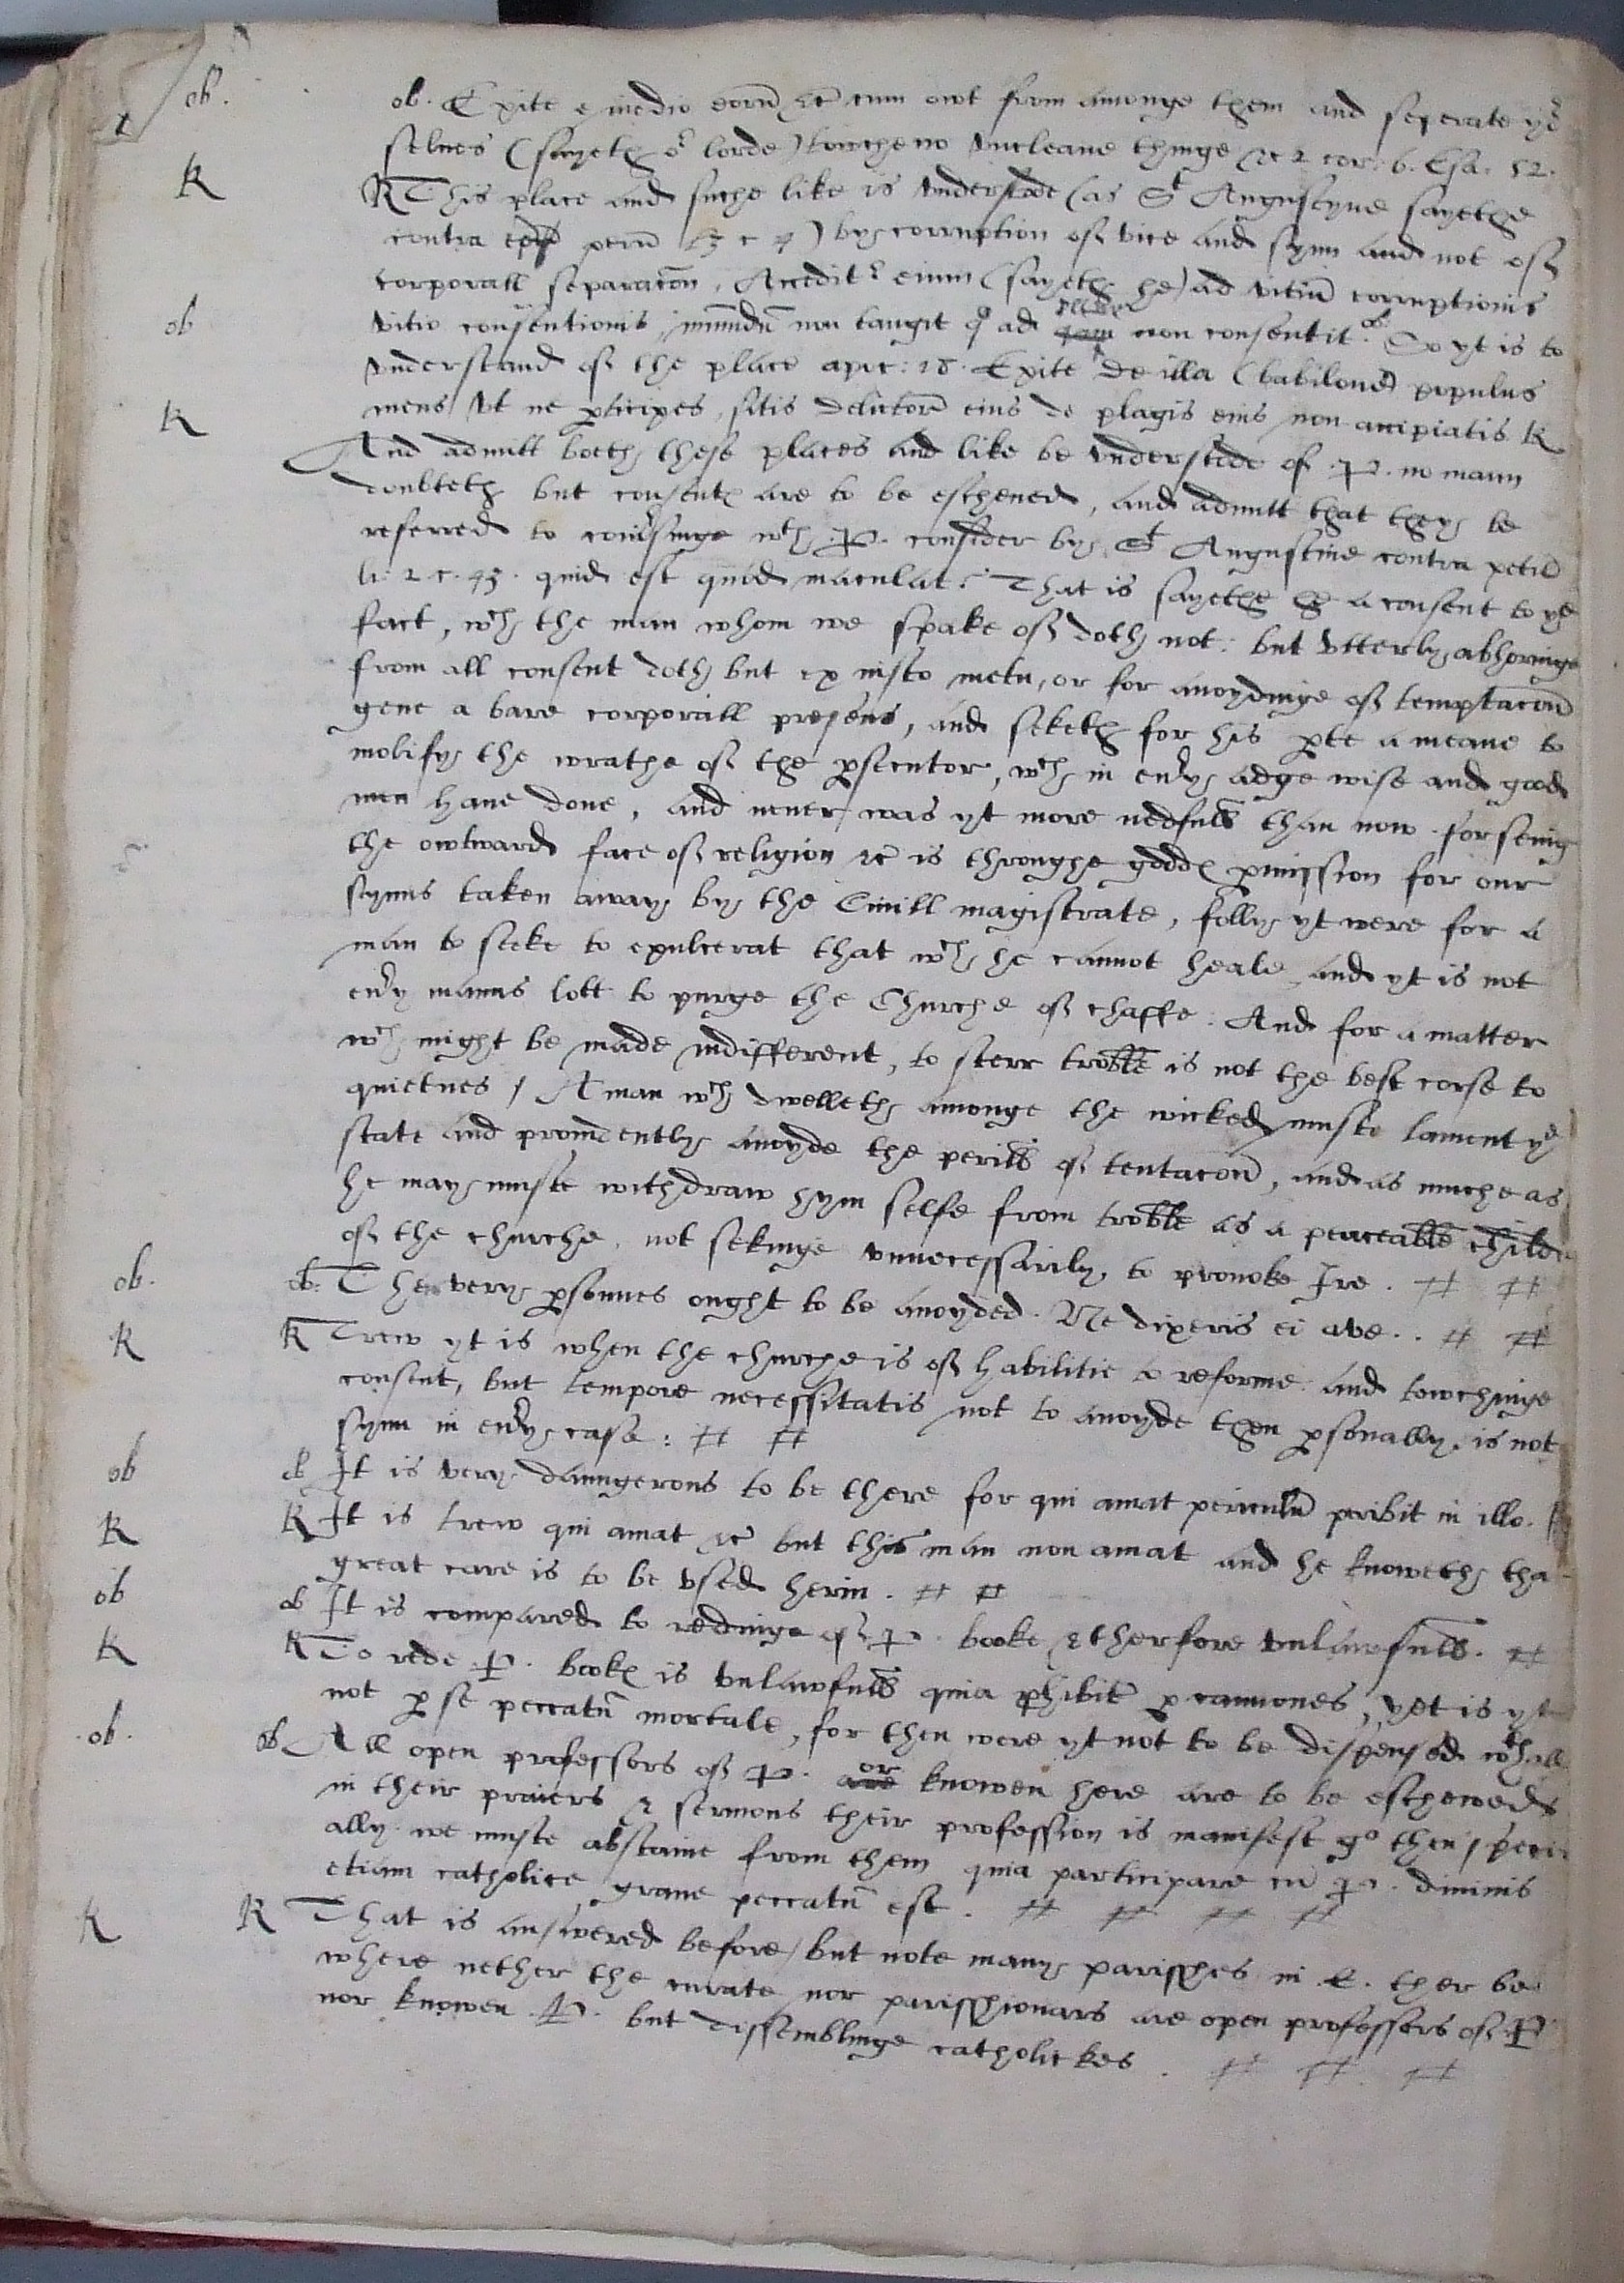 ob. ob. Exite e medio eorū &c cum owt from amonge them and seperate yor
selues (sayeth or lorde) towche no vncleane thinge &c 2 cor: 6. Esa. 52.
R R This place and suche like is vnderstode (as St Augustyne sayethe
contra perū 3 c 4) by corruption of vice and synn and not of
corporall separacōn. Accedit enim (sayeth he) ad vitiū corruptionis
ob vitio consentionis, immūdū non tangit qui ad non consentit. ob So yt is to
vnderstand of the place apoc: 18. Exite de illa (babilone) populus
meus vt ne pticipes sitis delictorū eius de plagis eius non accipiatis R
R And admitt boeth these places and like be vnderstode of .P. no mann
doubteth but consents are to be eschened, and admitt that they be
referred to conūsinge wth .P. consider by St Augustine contra petil
li: 2 c. 43. quid est quod maculat? That is sayethe he a consent to ye
fact, wch the man whom we spake of doth not: but vtterly abhoringe
from all consent doth but ex iusto metu, or for auoydinge of temptacōn
geue a bare corporall presens, and seketh for his pte a meane to
molify the wrathe of the psecutor, wch in euy adge wise and good
men haue done, and neuer was yt more nedfull than now. for seing
the owtward face of religion &c is throughe gods pmission for our
synns taken away by the Ciuill magistrate, folly yt were for a
man to seeke to exulcerat that wch he cannot heale, and yt is not
euy manns lott to purge the Churche of chaffe. And for a matter
wch might be made indifferent, to sterr troble is not the best corse to
quietnes / A man wch dwelleth amonge the wicked muste lament ye
state and prouidently auoyde the perills of tentacōn, and as muche as
he may muste withdraw hym selfe from troble as a peaceable childe
of the churche, not sekinge vnnecessarily to prouoke Ire. # #
ob. ob: The very psonnes ought to be auoyded. Ne dixeris ei aue.. # #
R R Trew yt is when the churche is of habilitie to reforme and towchinge
consent, but tempore necessitatis not to auoyde them psonally, is not
synn in euy case: # #
ob ob It is very daungerous to be there for qui amat periculū peribit in illo.
R R It is trew qui amat &c but this man non amat and he knoweth tha
great care is to be vsed herin. # #
ob ob It is compared to redinge of .P. booke & therfore vnlawfull. #
R R To rede .P. books is vnlawfull quia phibitr p canones, yet is yt
not p se peccatū mortale, for then were yt not to be dispensed wthall
ob. ob All open professors of .P. or knowen here are to be eschewed
in their praiers & sermons their profession is manifest go then speci
ally we muste abstaine from them quia participare cū .P. diuinis
etiam catholice graue peccatū est. # # # #
R R That is answered before / but note many parisshes in .E. ther be
where nether the curate nor parisshionars are open professors of .P
nor knowen .P. but dissemblinge catholickes. # # #